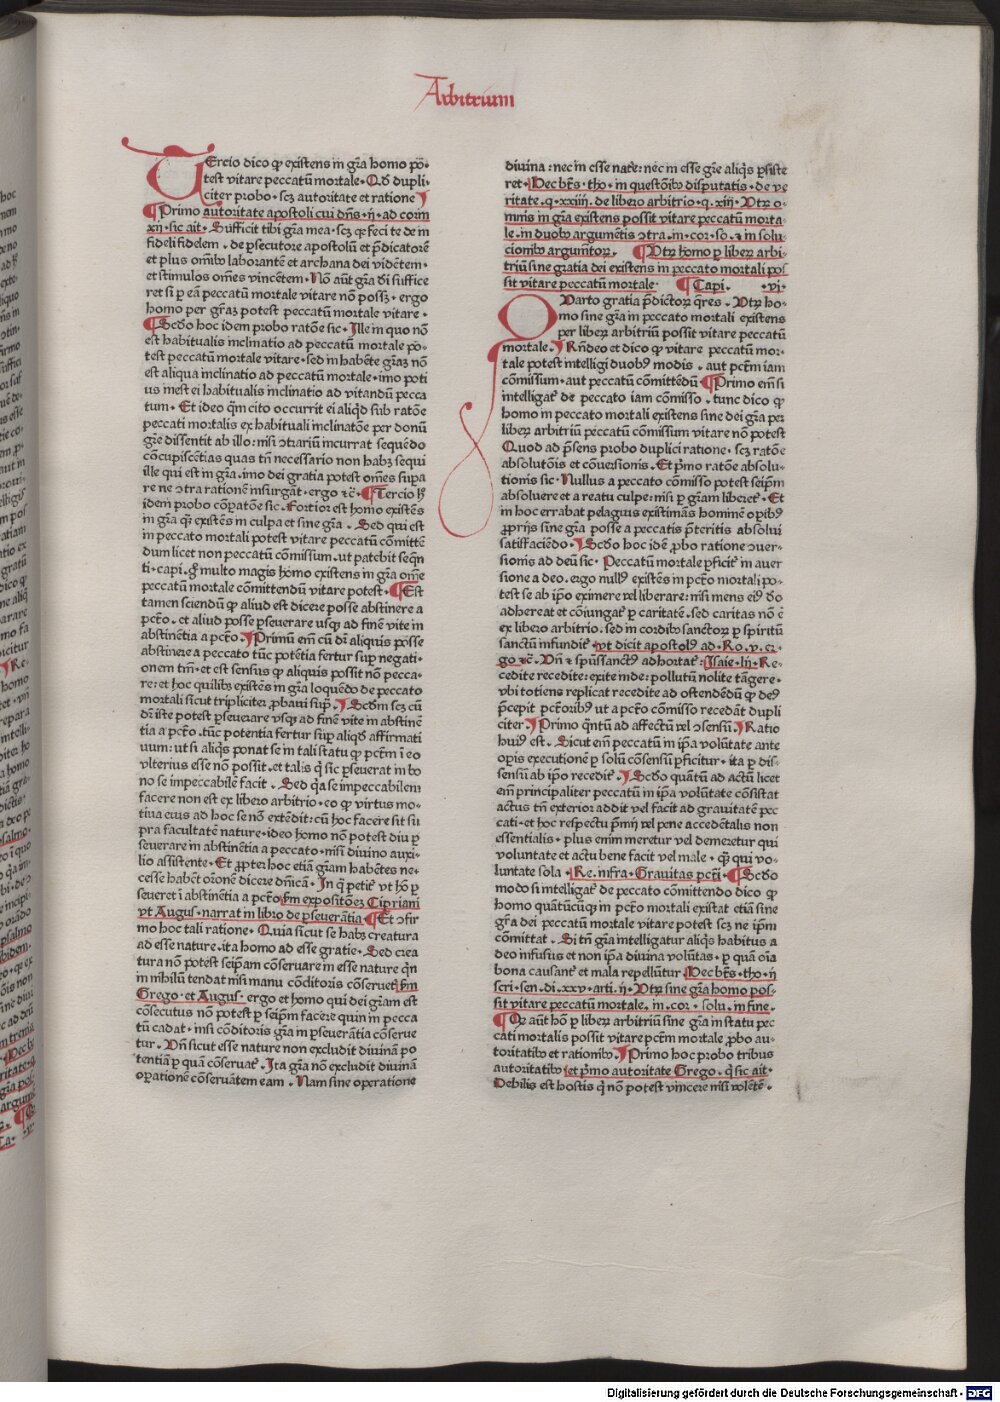 Arbitrium
TErcio dico ꝙ existens in gr̄a homo pō-
test vitare peccatū mortale. Qd̄ dupli-
citer probo. scꝫ autoritate et ratione
Primo autoritate apostoli cui dn̄s .ij. ad corin
xij. sic ait. Sufficit tibi gr̄a mea. scꝫ ꝙ feci te de in
fideli fidelem. de ꝑsecutore apostolū et p̄dicatorē
et plus om̄ibꝰ laborantē et archana dei vidētem.
et stimulos om̄es vincētem. Nō aūt gr̄a dī suffice
ret si ꝑ eā peccatū mortale vitare nō possꝫ. ergo
homo per gr̄aꝫ potest peccatū mortale vitare.
Scd̄o hoc idem probo ratōe sic. Ille in quo nō
est habitualis inclinatio ad peccatū mortale po-
test peccatū mortale vitare. sed in habēte gr̄aꝫ nō
est aliqua inclinatio ad peccatū mortale. imo poti
us inest ei habitualis inclinatio ad vitandū pecca
tum. Et ideo q̄m cito occurrit ei aliqd̄ sub ratōe
peccati mortalis ex habituali inclinatōe per donū
gr̄e dissentit ab illo: nisi ↄtrariū incurrat sequēdo
cōcupiscētias quas tn̄ necessario non habꝫ sequi
ille qui est in gr̄a. imo dei gratia potest om̄es supa
re ne ↄtra rationē insurgāt. ergo ⁊c̄. Tercio h̄
idem probo cōꝑatōe sic. Fortior est homo existēs
in gr̄a q̄ꝫ existēs in culpa et sine gr̄a. Sed qui est
in peccato mortali potest vitare peccatū cōmittē
dum licet non peccatū cōmissum. ut patebit seq̄n
ti. capi. gͦ multo magis homo existens in gr̄a om̄e
peccatū mortale cōmittendū vitare potest. Est
tamen sciendū ꝙ aliud est dicere posse abstinere a
pctō. et aliud posse ꝑseuerare usqꝫ ad finē vite in
abstinētia a pctō. Primū em̄ cū dr̄ aliquis posse
abstinere a peccato tūc potētia fertur sup̱ negati-
onem tm̄. et est sensus ꝙ aliquis possit nō pecca-
re: et hoc quilibꝫ existēs in gr̄a loquēdo de peccato
mortali sicut tripliciteꝝ probaui sup̱. Scdm̄ scꝫ cū
dr̄ iste potest ꝑseuerare usqꝫ ad finē vite in abstinē
tia a pctō. tūc potentia fertur sup̱ aliqd̄ affirmati
uum: ut si aliq̄s ponat se in tali statu ꝙ pctm̄ ī eo
vlterius esse nō possit. et talis q̄ sic ꝑseuerat in bo
no se impeccabilē facit. Sed q̄a se impeccabilem
facere non est ex libero arbitrio. eo ꝙ virtus mo-
tiua eius ad hoc se nō extēdit: cū hoc facere sit su
pra facultatē nature. ideo homo nō potest diu ꝑ
seuerare in abstinētia a peccato. nisi diuino auxi-
lio assistente. Et ꝓpter hoc etiā gr̄am habētes ne-
cesse habēt orōnē dicere dn̄icā. In q̄ petit᷑ vt hō ꝑ
seueret ī abstinētia a pctō sm̄ expositōeꝫ Cipriani
vt Augus. narrat in libro de ꝑseuerātia Et ↄfir
mo hoc tali ratione. Quia sicut se habꝫ creatura
ad esse nature. ita homo ad esse gratie. Sed crea
tura nō potest seip̄am cōseruare in esse nature q̄n
in nihilū tendat nisi manu cōditoris cōseruet᷑ sm̄
Grego. et Augus. ergo et homo qui dei gr̄am est
cōsecutus nō potest ꝑ seip̄m facere quin in pecca
tū cadat. nisi cōditoris gr̄a in ꝑseuerātia cōserue
tur. Vn̄ sicut esse nature non excludit diuinā po
tentiā ꝑ quā cōseruat᷑. Ita gr̄a nō excludit diuinā
oꝑationē cōseruātem eam. Nam sine operatione
diuina: nec in esse nat᷑e: nec in esse gr̄e aliq̄s ꝑsiste
ret. Hec bt̄s. tho. in questōibꝰ disputatis. de ve
ritate. q. xxiiij. de libero arbitrio. q. xiij. Vtꝝ o-
mnis in gr̄a existens possit vitare peccatū morta-
le. in duobꝰ argumētis ↄtra. in. cor. so. ⁊ in solu
cionibꝰ argumētoꝝ. Vtꝝ homo ꝑ liberꝫ arbi-
triū sine gratia dei existens in peccato mortali pos
sit vitare peccatū mortale. Capi. .vj.
QVarto gratia p̄dictoꝝ q̄res. Vtꝝ ho-
mo sine gr̄a in peccato mortali existens
per liberꝫ arbitriū possit vitare peccatū
mortale. Rn̄deo et dico ꝙ vitare peccatū mor-
tale potest intelligi duobꝰ modis. aut pctm̄ iam
cōmissum. aut peccatū cōmittēdū Primo em̄ si
intelligat᷑ de peccato iam cōmisso. tunc dico ꝙ
homo in peccato mortali existens sine dei gr̄a per
liberꝫ arbitriū peccatū cōmissum vitare nō potest
Quod ad p̄sens probo duplici ratione. scꝫ ratōe
absolutōis et cōuersionis. Et p̄mo ratōe absolu-
tionis sic. Nullus a peccato cōmisso potest seip̄m
absoluere et a reatu culpe: nisi ꝑ gr̄am liberet᷑. Et
in hoc errabat pelagius existimās hominē oꝑibꝰ
ꝓprijs sine gr̄a posse a peccatis p̄teritis absolui
satisfaciēdo. Scd̄o hoc idē ꝓbo ratione ↄuer-
sionis ad deū sic. Peccatū mortale ꝑficit᷑ in auer
sione a deo. ergo nullꝰ existēs in pctō mortali po-
test se ab ip̄o eximere vel liberare: nisi mens eiꝰ dō
adhereat et cōiungat᷑ ꝑ caritatē. sed caritas nō ē
ex libero arbitrio. sed in cordibꝰ sanctoꝝ ꝑ spiritū
sanctū infundit᷑. vt dicit apostolꝰ ad. Ro. v. er-
go ⁊c̄. Vn̄ ⁊ spūssanctꝰ adhortat᷑: Isaie. lij. Re-
cedite recedite: exite inde: pollutū nolite tāgere.
vbi totiens replicat recedite ad ostendēdū ꝙ deꝰ
p̄cepit pctōribꝰ ut a pctō cōmisso recedāt dupli
citer. Primo q̄ntū ad affectū vel ↄsensū. Ratio
huiꝰ est. Sicut em̄ peccatū in ip̄a volūtate ante
oꝑis executionē ꝑ solū cōsensū ꝑficitur. ita ꝑ dis-
sensū ab ip̄o recedit᷑. Scd̄o quātū ad actū licet
em̄ principaliter peccatū in ip̄a volūtate cōsistat
actus tn̄ exterior addit vel facit ad grauitatē pec
cati. et hoc respectu p̄mij vel pene accedētalis non
essentialis. plus enim meretur vel demeretur qui
voluntate et actu bene facit vel male. q̄ꝫ qui vo-
luntate sola. Re. infra. Grauitas pctī. Scd̄o
modo si intelligat᷑ de peccato cōmittendo dico ꝙ
homo quātūcūqꝫ in pctō mortali existat etiā sine
gr̄a dei peccatū mortale vitare potest scꝫ ne ip̄m
cōmittat. Si tn̄ gr̄a intelligatur aliq̄s habitus a
deo infusus et non ip̄a diuina volūtas. ꝑ quā oīa
bona causant᷑ et mala repellūtur. Hec bt̄s. tho. ij
scri. sen. di. xxv. arti. ij. Vtꝝ sine gr̄a homo pos-
sit vitare peccatū mortale. in. cor. solu. in fine.
Qꝙ aūt hō ꝑ liberꝫ arbitriū sine gr̄a in statu pec
cati mortalis possit vitare pctm̄ mortale ꝓbo au-
toritatibꝰ et rationibꝰ. Primo hoc probo tribus
autoritatibꝰ et p̄mo autoritate Grego. q̄ sic ait.
Debilis est hostis q̄ nō potest vincere nisi volētē.
Digitalisierung gefördert durch die Deutsche Forschungsgemeinschaft - DFG